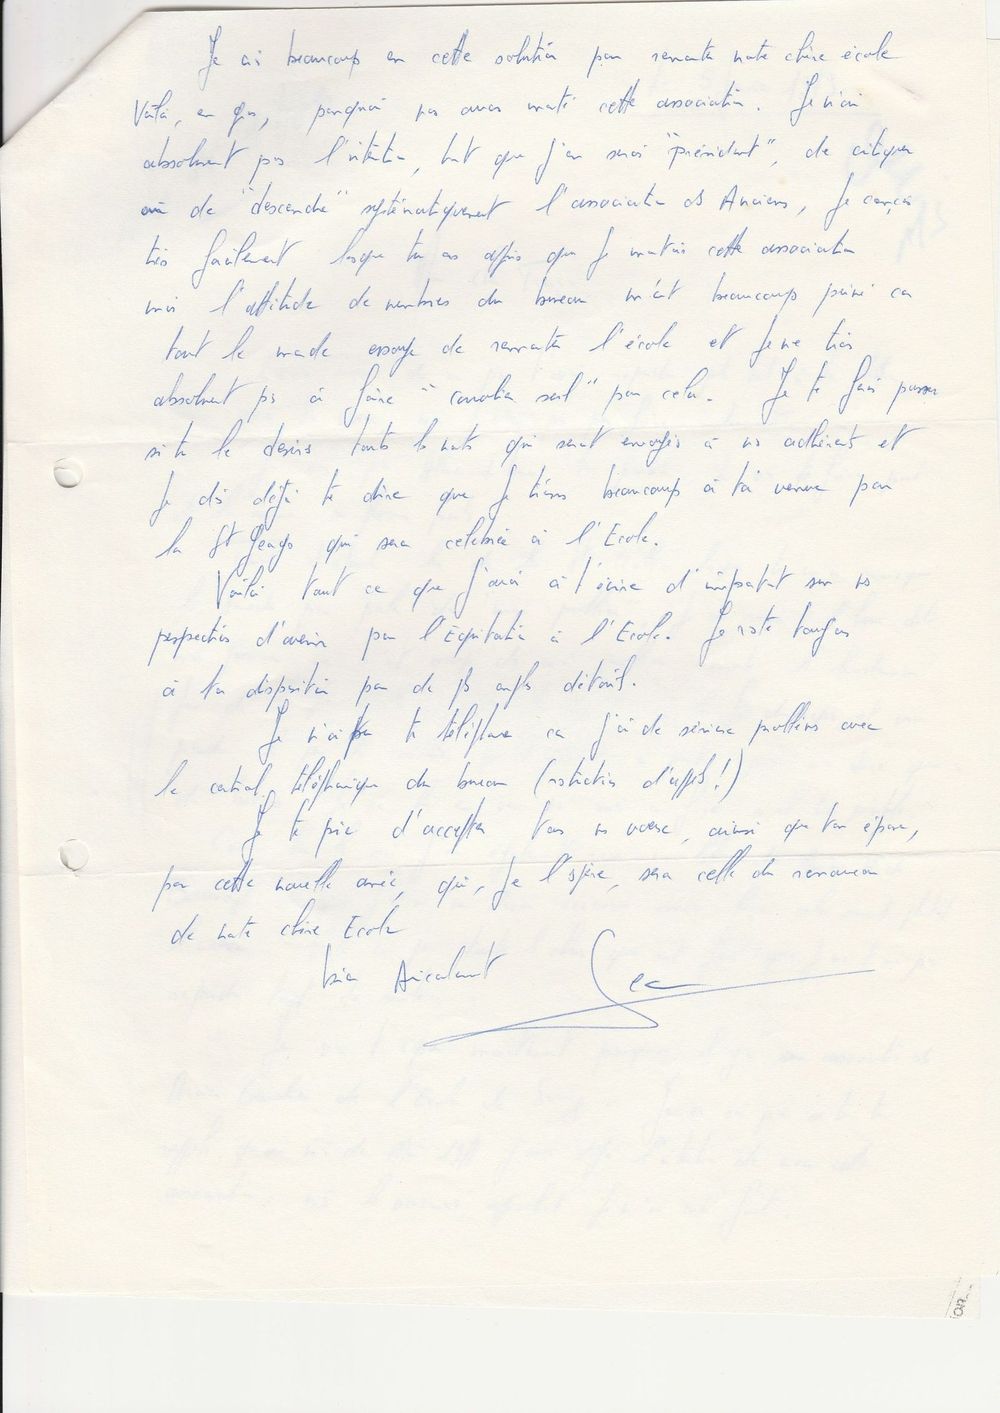 Je crois beaucoup en cette solution pour remonter notre chère école
Voilà, en gros, pourquoi nous avons monté cette association. Je n'ai
absolument pas l'intention, tant que j'en serai "président", de critiquer
ou de "descendre" systématiquement l'association des Anciens, Je conçois
très facilement lorsque tu as appris que je montais cette association
mais l'attitude de membres du bureau m'ont beaucoup peiné car
tout le monde essaye de remonter l'école et Je ne tiens
absolument pas à faire "cavalier seul" pour cela. Je te fais passer
si tu le desires toute les notes qui sont envoyés à nos adhérents et
Je dois déjà te dire que Je tiens beaucoup à ta venue pour
la St Georges qui sera célébrée à l'Ecole.
Voilà tout ce que j'avais à t'écrire d'important sur nos
perspectives d'avenir pour l'Equitation à l'Ecole. Je reste toujours
à ta disposition pour de plus amples détails.
Je n'ai pu te téléphoner car j'ai de sérieux problèmes avec
le central téléphonique du bureau (restriction d'appels!)
Je te prie d'accepter tous nos voeux, ainsi que ton épouse,
pour cette nouvelle année, qui, Je l'espère, sera celle du renouveau
de notre chère Ecole
bien Amicalement